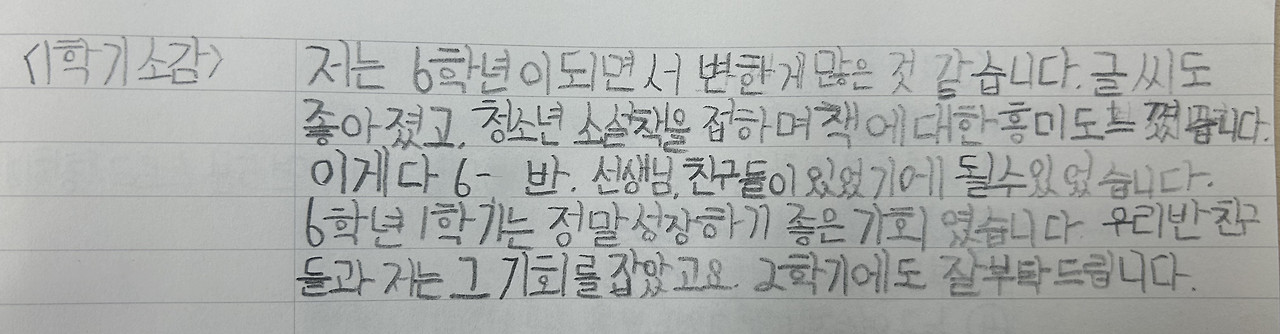 <1학기소감> 저는 6학년이되면서 변한게많은 것 같습니다. 글씨도
좋아졌고, 청소년 소설책을 접하며책에대한흥미도느꼈습니다.
이게다 6- 반. 선생님, 친구들이 있었기에 될수있었습니다.
6학년 1학기는 정말성장하기 좋은기회 였습니다. 우리반친구
들과 저는 그 기회를잡았고요. 2학기에도 잘부탁드립니다.